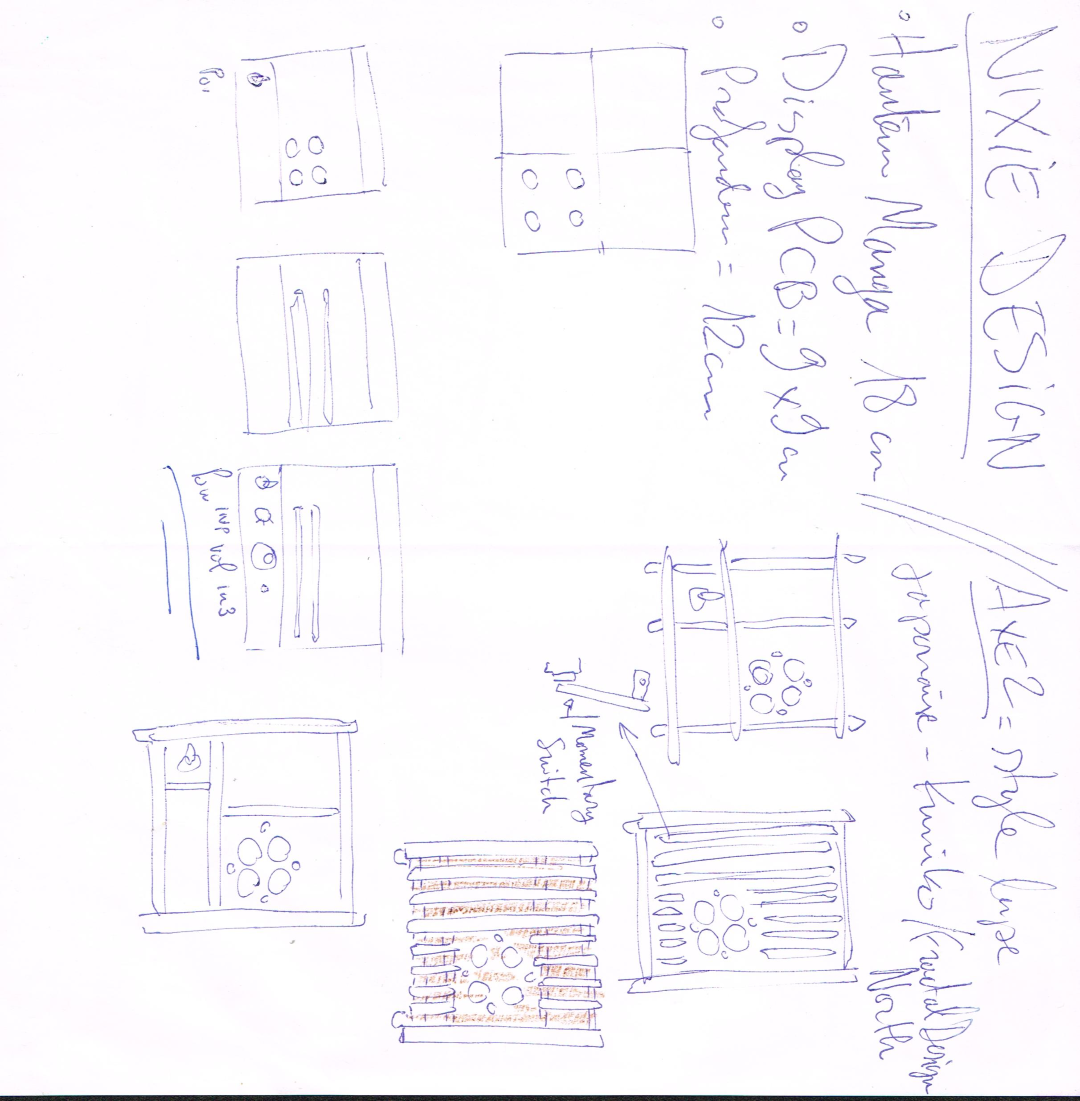 NIXIE DESIGN
◦ Hauteur Manga 18 cm
◦ Display PCB = 9 x 9 cm
◦ Profondeur = 12cm
// AXE 2 = style luxe
Japonaise - Kumiko / Fractal Design
North
Momentary
Switch
Pow
Pow INP Vol in3